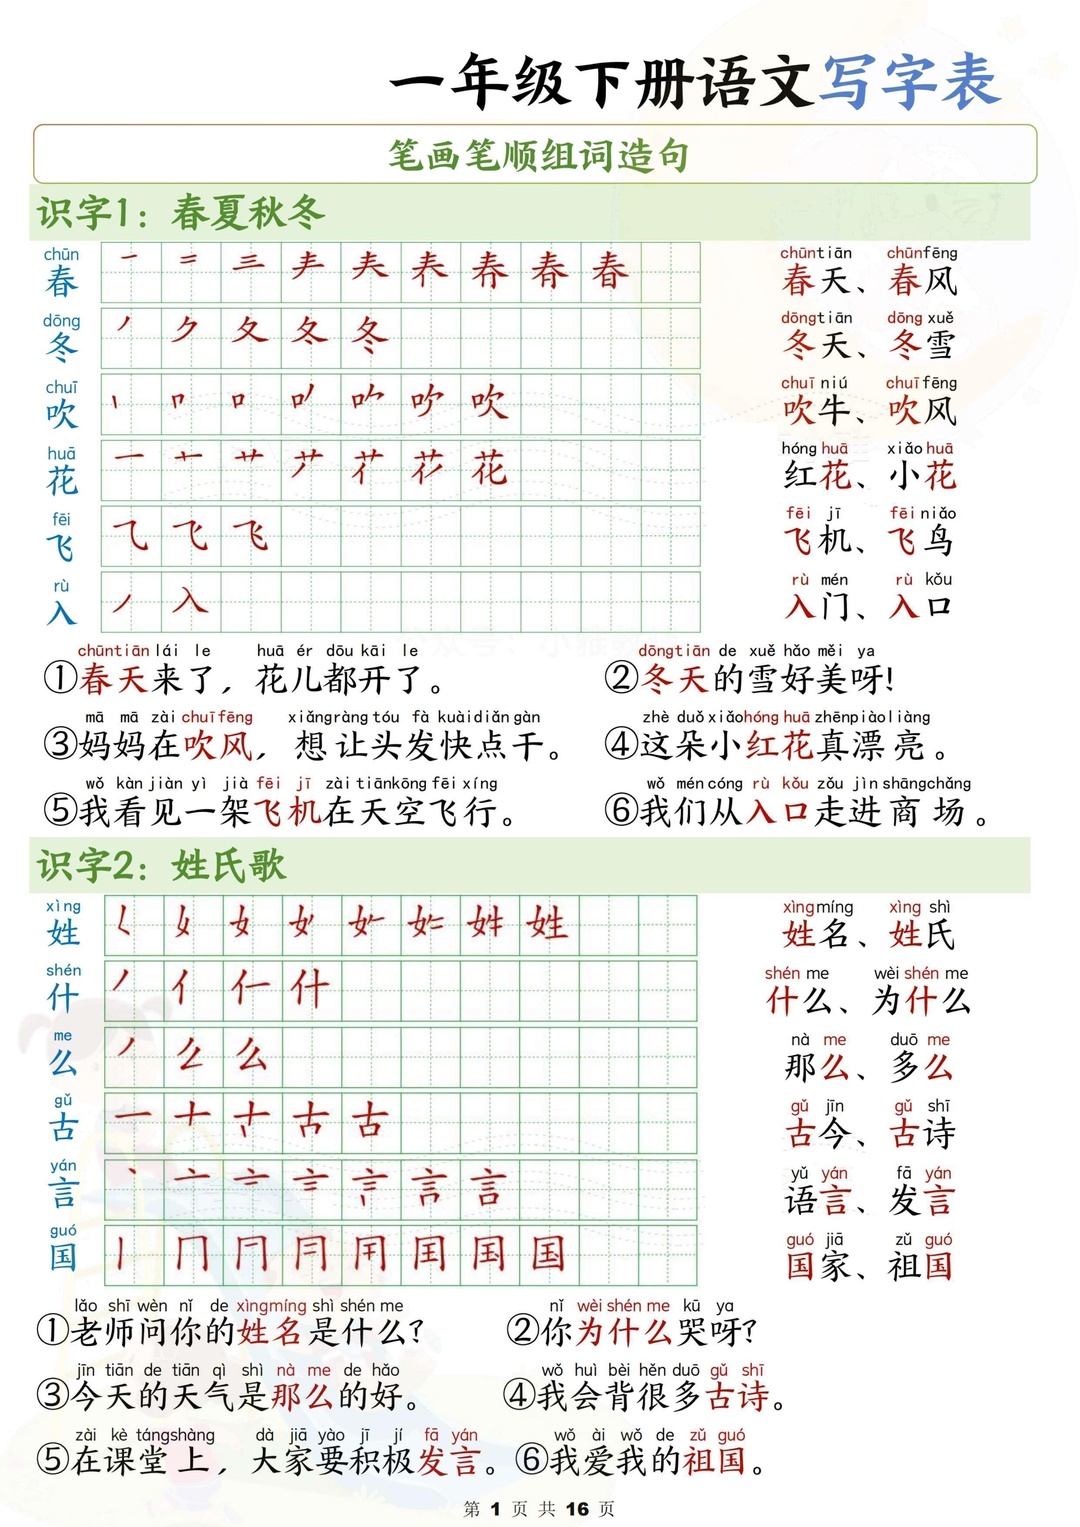 一年级下册语文写字表
笔画笔顺组词造句
识字1：春夏秋冬
chūn chūntiān chūnfēng
春 一 二 三 春 春天、春风
dōng dōngtiān dōng xuě
冬 丿 夂 冬 冬天、冬雪
chuī chuī niú chuī fēng
吹 丨 口 吹 吹牛、吹风
huā hóng huā xiǎo huā
花 一 艹 花 红花、小花
fēi fēi jī fēi niǎo
飞 飞 飞机、飞鸟
rù rù mén rù kǒu
入 丿 入 入门、入口
chūntiān lái le huā ér dōu kāi le dōngtiān de xuě hǎo měi ya
①春天来了，花儿都开了。 ②冬天的雪好美呀!
mā mā zài chuīfēng xiǎngràng tóu fà kuàidiǎn gàn zhè duǒ xiǎohóng huā zhēnpiàoliàng
③妈妈在吹风，想让头发快点干。 ④这朵小红花真漂亮。
wǒ kàn jiàn yì jià fēi jī zài tiānkōng fēi xíng wǒ mén cóng rù kǒu zǒu jìn shāngchǎng
⑤我看见一架飞机在天空飞行。 ⑥我们从入口走进商场。
识字2：姓氏歌
xìng xìngmíng xìng shì
姓 女 姓 姓名、姓氏
shén shén me wèi shén me
什 丿 亻 什 什么、为什么
me nà me duō me
么 丿 么 么 那么、多么
gǔ gǔ jīn gǔ shī
古 一 十 古 古 古今、古诗
yán yǔ yán fā yán
言 丶 亠 言 语言、发言
guó guó jiā zǔ guó
国 丨 冂 国 国家、祖国
lǎo shī wèn nǐ de xìngmíng shì shén me nǐ wèi shén me kū ya
①老师问你的姓名是什么? ②你为什么哭呀?
jīn tiān de tiān qì shì nà me de hǎo wǒ huì bèi hěn duō gǔ shī
③今天的天气是那么的好。 ④我会背很多古诗。
zài kè tángshàng dà jiā yào jī jí fā yán wǒ ài wǒ de zǔ guó
⑤在课堂上，大家要积极发言。 ⑥我爱我的祖国。
第 1 页 共 16 页